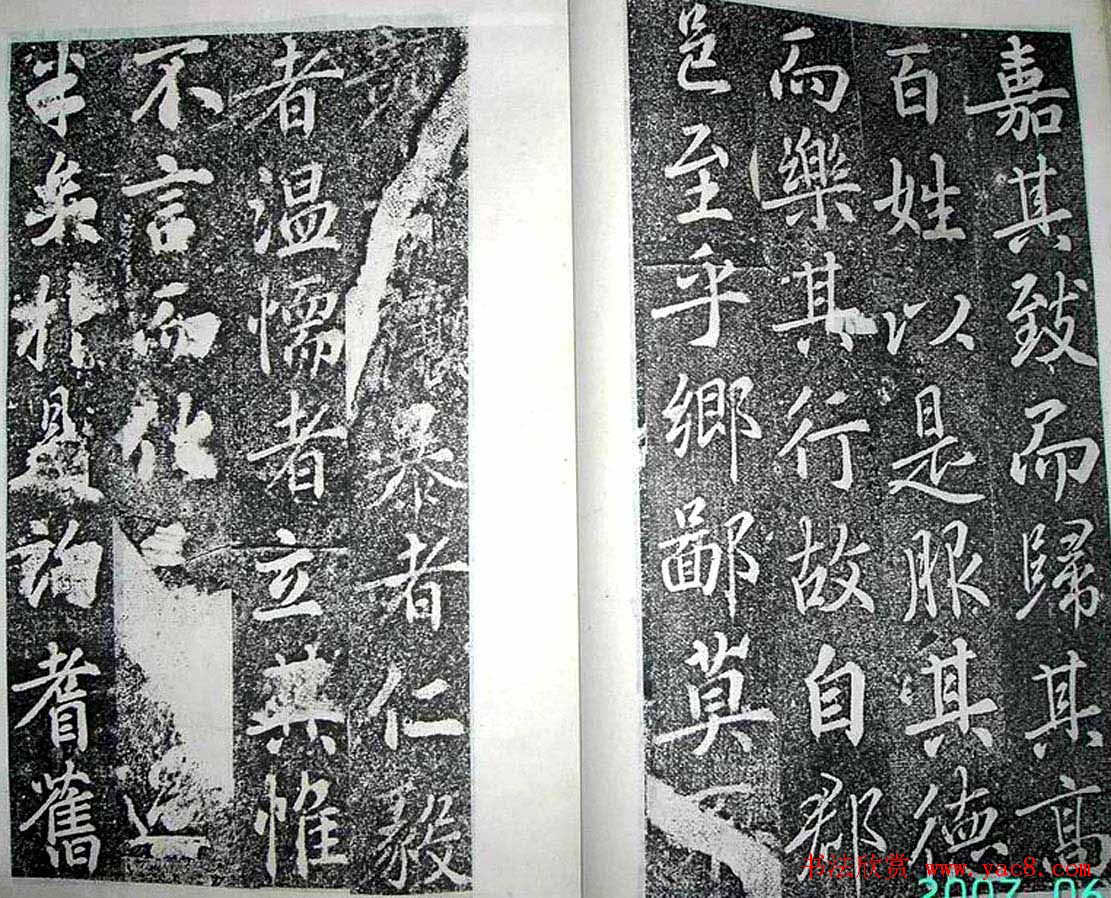 嘉其致而歸其高
百姓以是服其德
而樂其行故自郡
邑至乎鄉鄙莫
暴者仁毅
者溫懦者立無惟
不言而化
半矣於是詢耆舊
书法欣赏 www.yac8.com
2007 06